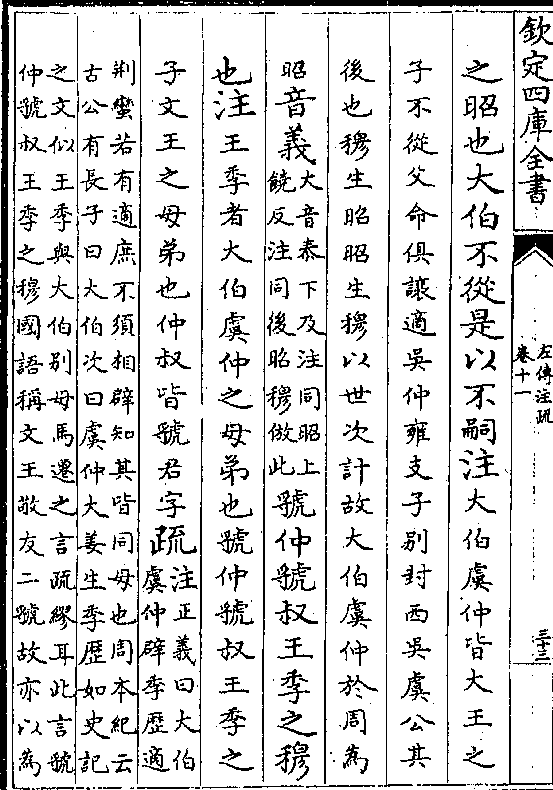 欽定四庫全書
左傳注疏
卷十一
三十三
之昭也大伯不從是以不嗣注大伯虞仲皆大王之
子不從父命俱讓適吳仲雍支子别封西吳虞公其
後也穆生昭昭生穆以世次計故大伯虞仲於周為
昭音義大音泰下及注同昭上
饒反注同後昭穆倣此虢仲虢叔王季之穆
也注王季者大伯虞仲之母弟也虢仲虢叔王季之
子文王之母弟也仲叔皆虢君字疏注正義曰大伯
虞仲辟季歷適
荆蠻若有適庶不須相辟知其皆同母也周本紀云
古公有長子曰大伯次曰虞仲大姜生季歷如史記
之文似王季與大伯别母馬遷之言疏繆耳此言虢
仲虢叔王季之穆國語稱文王敬友二虢故亦以為